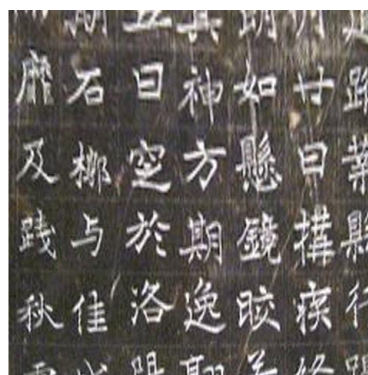 葉縣行
月廿日搆疾終
朗如懸鏡皎若
其神方期逸翮
日空於洛陽
石槨与佳
靡及践秋